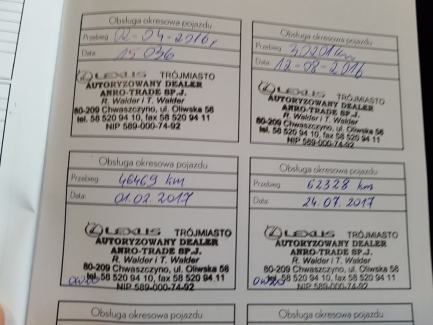 Obsługa okresowa pojazdu
Przebieg 02-04-2016r
Data: 15 036
LEXUS TRÓJMIASTO
AUTORYZOWANY DEALER
ANRO-TRADE SP.J.
R. Walder i T. Walder
80-209 Chwaszczyno, ul. Oliwska 58
tel. 58 520 94 10, fax 58 520 94 11
NIP 589-000-74-92
Obsługa okresowa pojazdu
Przebieg 30201km
Data: 12-08-2016
LEXUS TRÓJMIASTO
AUTORYZOWANY DEALER
ANRO-TRADE SP.J.
R. Walder i T. Walder
80-209 Chwaszczyno, ul. Oliwska 58
tel. 58 520 94 10, fax 58 520 94 11
NIP 589-000-74-92
Obsługa okresowa pojazdu
Przebieg 46469 km
Data: 01.02.2017
LEXUS TRÓJMIASTO
AUTORYZOWANY DEALER
ANRO-TRADE SP.J.
R. Walder i T. Walder
80-209 Chwaszczyno, ul. Oliwska 58
tel. 58 520 94 10, fax 58 520 94 11
NIP 589-000-74-92
Obsługa okresowa pojazdu
Przebieg 62328 km
Data: 24.07.2017
LEXUS TRÓJMIASTO
AUTORYZOWANY DEALER
ANRO-TRADE SP.J.
R. Walder i T. Walder
80-209 Chwaszczyno, ul. Oliwska 58
tel. 58 520 94 10, fax 58 520 94 11
NIP 589-000-74-92
Obsługa okresowa pojazdu
Obsługa okresowa pojazdu